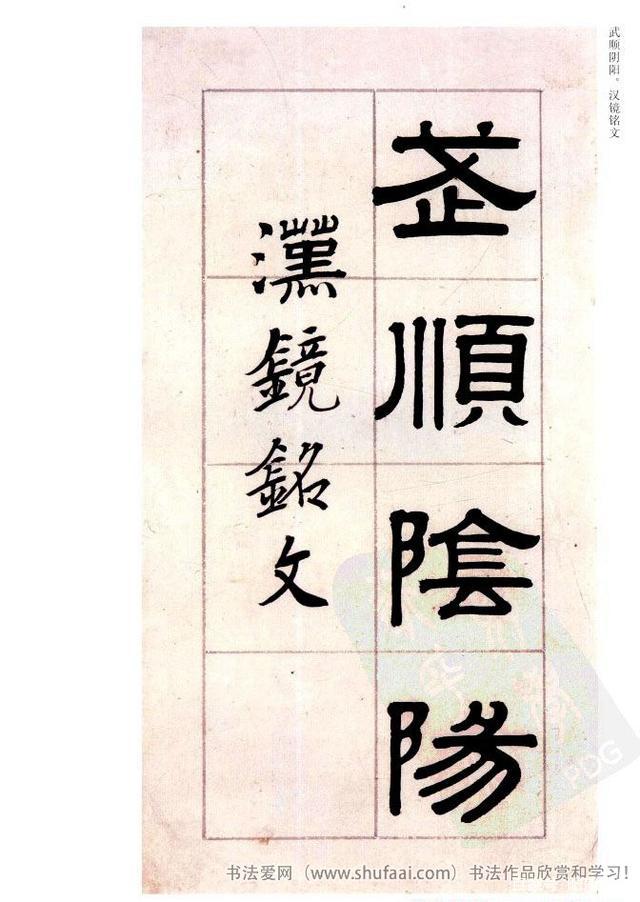 武顺阴阳。汉镜铭文
武順陰陽
漢鏡銘文
书法爱网（www.shufaai.com）书法作品欣赏和学习！
PDG